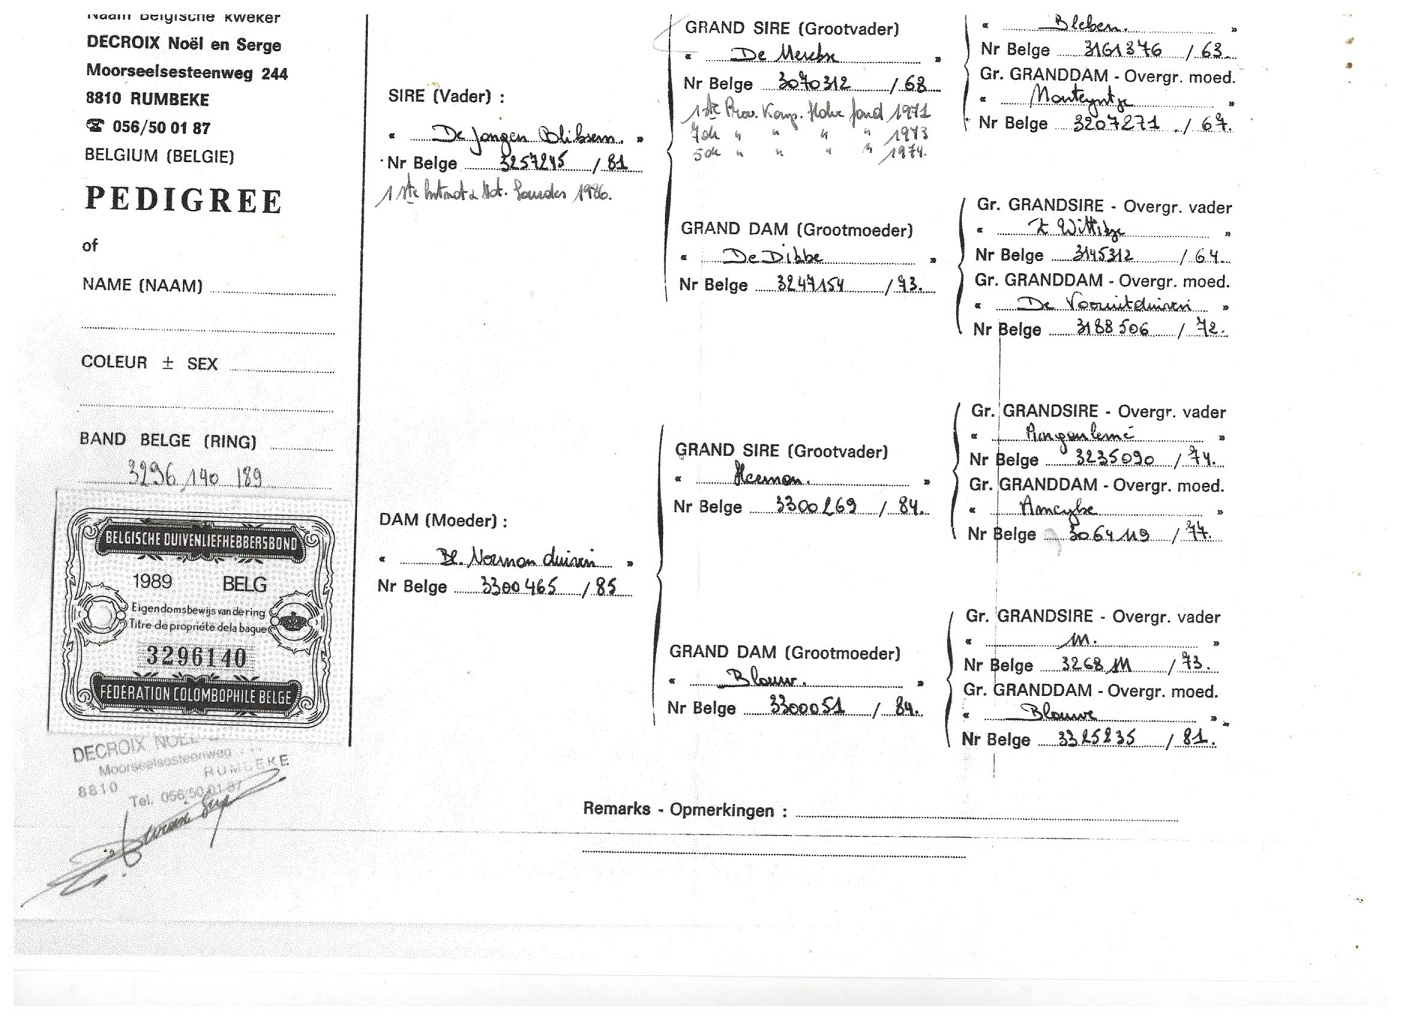 Naam Belgische kweker
DECROIX Noël en Serge
Moorseelsesteenweg 244
8810 RUMBEKE
☎ 056/50 01 87
BELGIUM (BELGIE)
PEDIGREE
of
NAME (NAAM)
COLEUR ± SEX
BAND BELGE (RING)
3296 140 /89
BELGISCHE DUIVENLIEFHEBBERSBOND
1989 BELG
Eigendomsbewijs van de ring
Titre de propriété de la bague
3296140
FEDERATION COLOMBOPHILE BELGE
DECROIX NOEL
Moorseelsesteenweg
8810 RUMBEKE
Tel. 056/50 01 87
SIRE (Vader) :
" De Jongen Bliksem. "
Nr Belge 3257245 / 81
1ste Intnat Nat. Lourdes 1986.
DAM (Moeder) :
" Noerman duivin "
Nr Belge 3300465 / 85
GRAND SIRE (Grootvader)
" De Merckx "
Nr Belge 3070312 / 68
1ste Prov. Kamp. Halve fond 1971
7de " " " " 1973
5de " " " 1974.
GRAND DAM (Grootmoeder)
" De Dikke "
Nr Belge 3247154 / 73.
GRAND SIRE (Grootvader)
" Herman. "
Nr Belge 3300269 / 84.
GRAND DAM (Grootmoeder)
" Blauw. "
Nr Belge 3300051 / 84.
" "
Nr Belge 3161376 / 63.
Gr. GRANDDAM - Overgr. moed.
" "
Nr Belge 3207271 / 67.
Gr. GRANDSIRE - Overgr. vader
" 't Wittje "
Nr Belge 3145312 / 64.
Gr. GRANDDAM - Overgr. moed.
" De Vooruitduivin "
Nr Belge 3188506 / 72.
Gr. GRANDSIRE - Overgr. vader
" Angoulemé "
Nr Belge 3235090 / 74.
Gr. GRANDDAM - Overgr. moed.
" "
Nr Belge 3064119 / 77.
Gr. GRANDSIRE - Overgr. vader
" M. "
Nr Belge 3268111 / 73.
Gr. GRANDDAM - Overgr. moed.
" Blauwe "
Nr Belge 3325235 / 81.
Remarks - Opmerkingen :